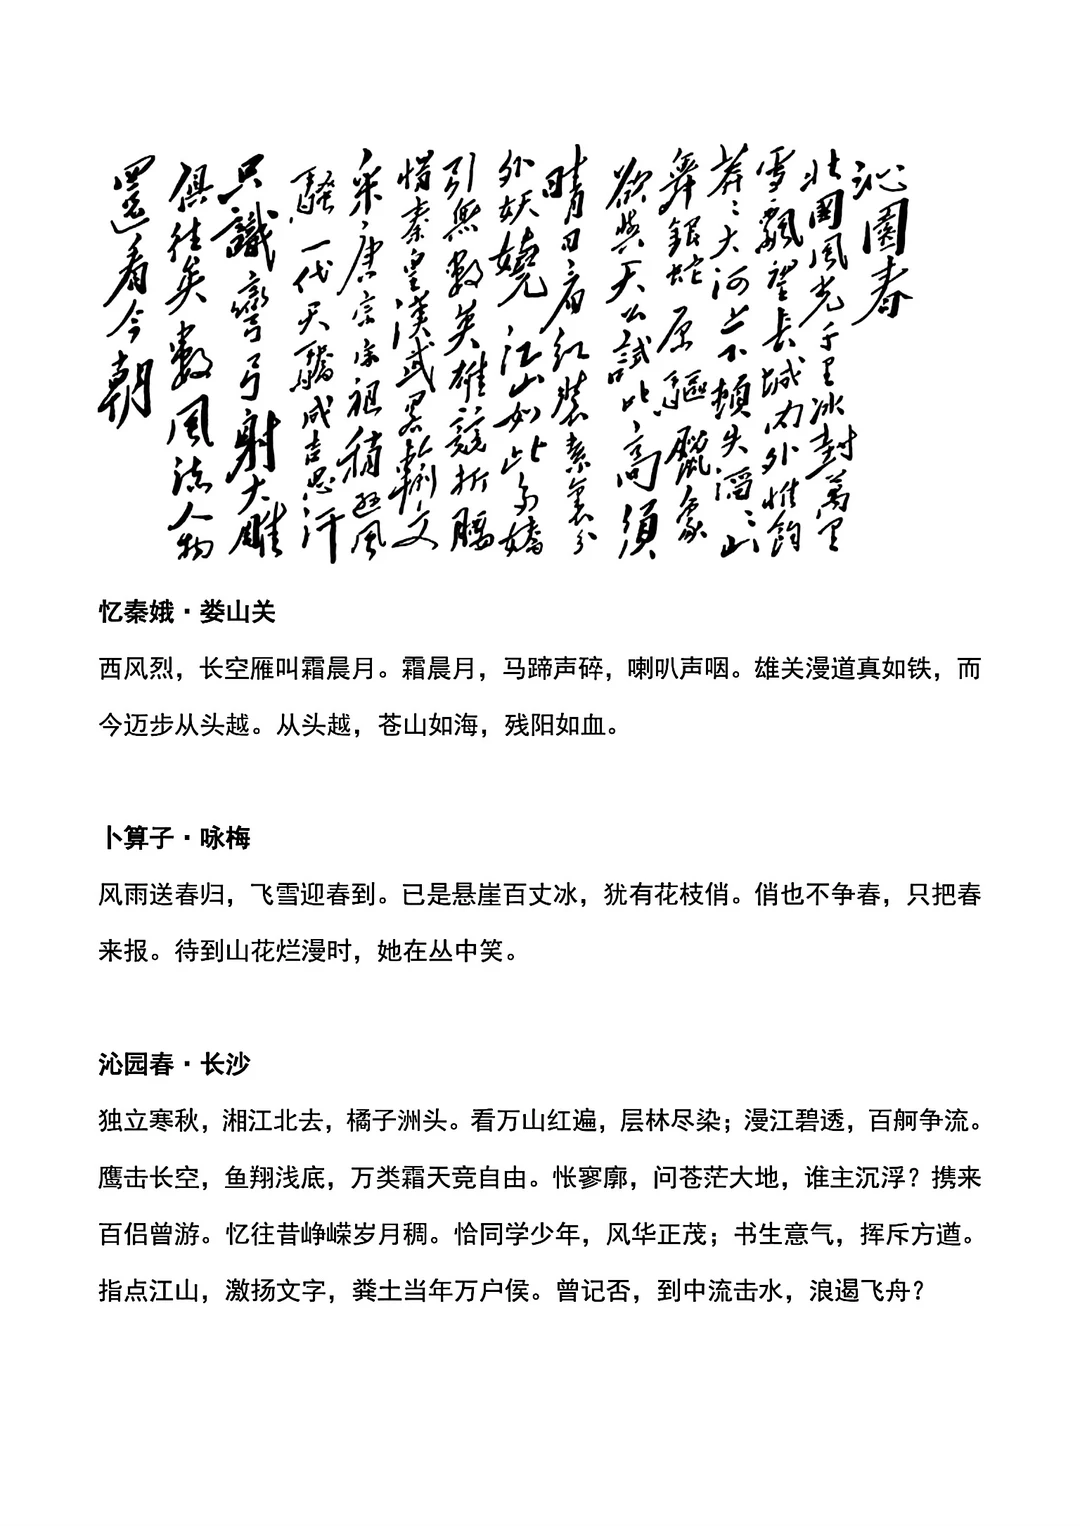 沁園春
北國風光千里冰封萬里
雪飄望長城內外惟餘
莽〻大河上下頓失滔〻山
舞銀蛇原驅臘象
欲與天公試比高須
晴日看紅裝素裹分
外妖嬈江山如此多嬌
引無數英雄競折腰
惜秦皇漢武略輸文
采唐宗宋祖稍遜風
騷一代天驕成吉思汗
只識彎弓射大雕
俱往矣數風流人物
還看今朝
忆秦娥·娄山关
西风烈，长空雁叫霜晨月。霜晨月，马蹄声碎，喇叭声咽。雄关漫道真如铁，而
今迈步从头越。从头越，苍山如海，残阳如血。
卜算子·咏梅
风雨送春归，飞雪迎春到。已是悬崖百丈冰，犹有花枝俏。俏也不争春，只把春
来报。待到山花烂漫时，她在丛中笑。
沁园春·长沙
独立寒秋，湘江北去，橘子洲头。看万山红遍，层林尽染；漫江碧透，百舸争流。
鹰击长空，鱼翔浅底，万类霜天竞自由。怅寥廓，问苍茫大地，谁主沉浮？携来
百侣曾游。忆往昔峥嵘岁月稠。恰同学少年，风华正茂；书生意气，挥斥方遒。
指点江山，激扬文字，粪土当年万户侯。曾记否，到中流击水，浪遏飞舟？